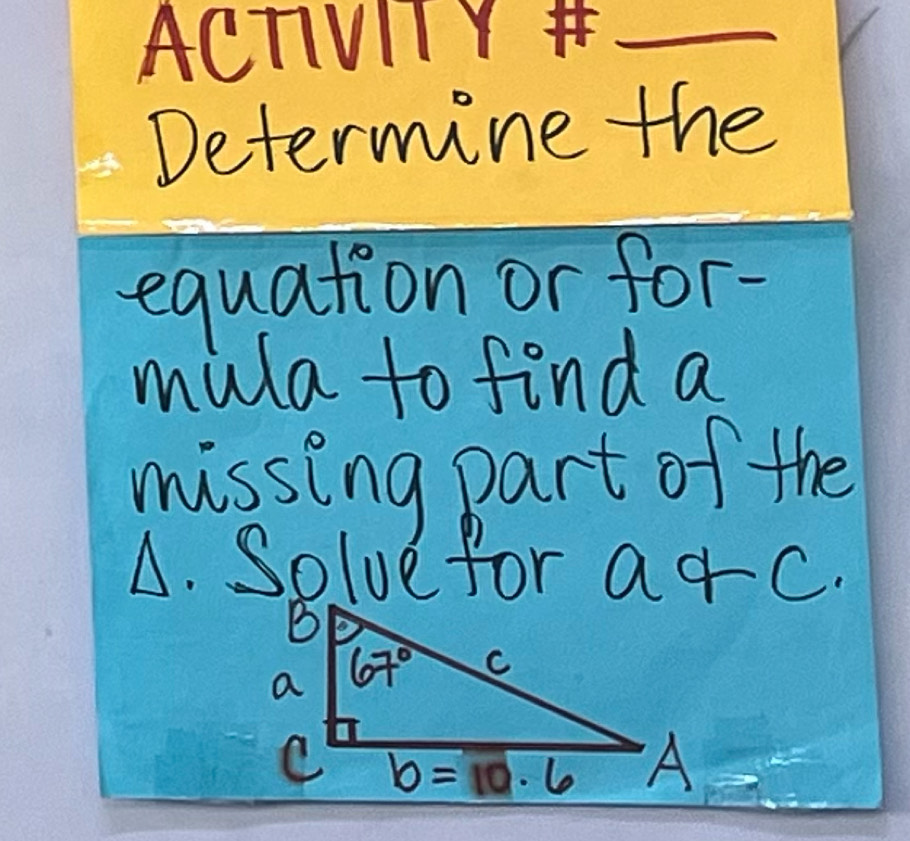 ACTIVITY # ___
Determine the
equation or for-
mula to find a
missing part of the
Δ. Solve for a & c.
B
67°
c
a
C
b = 10.6
A